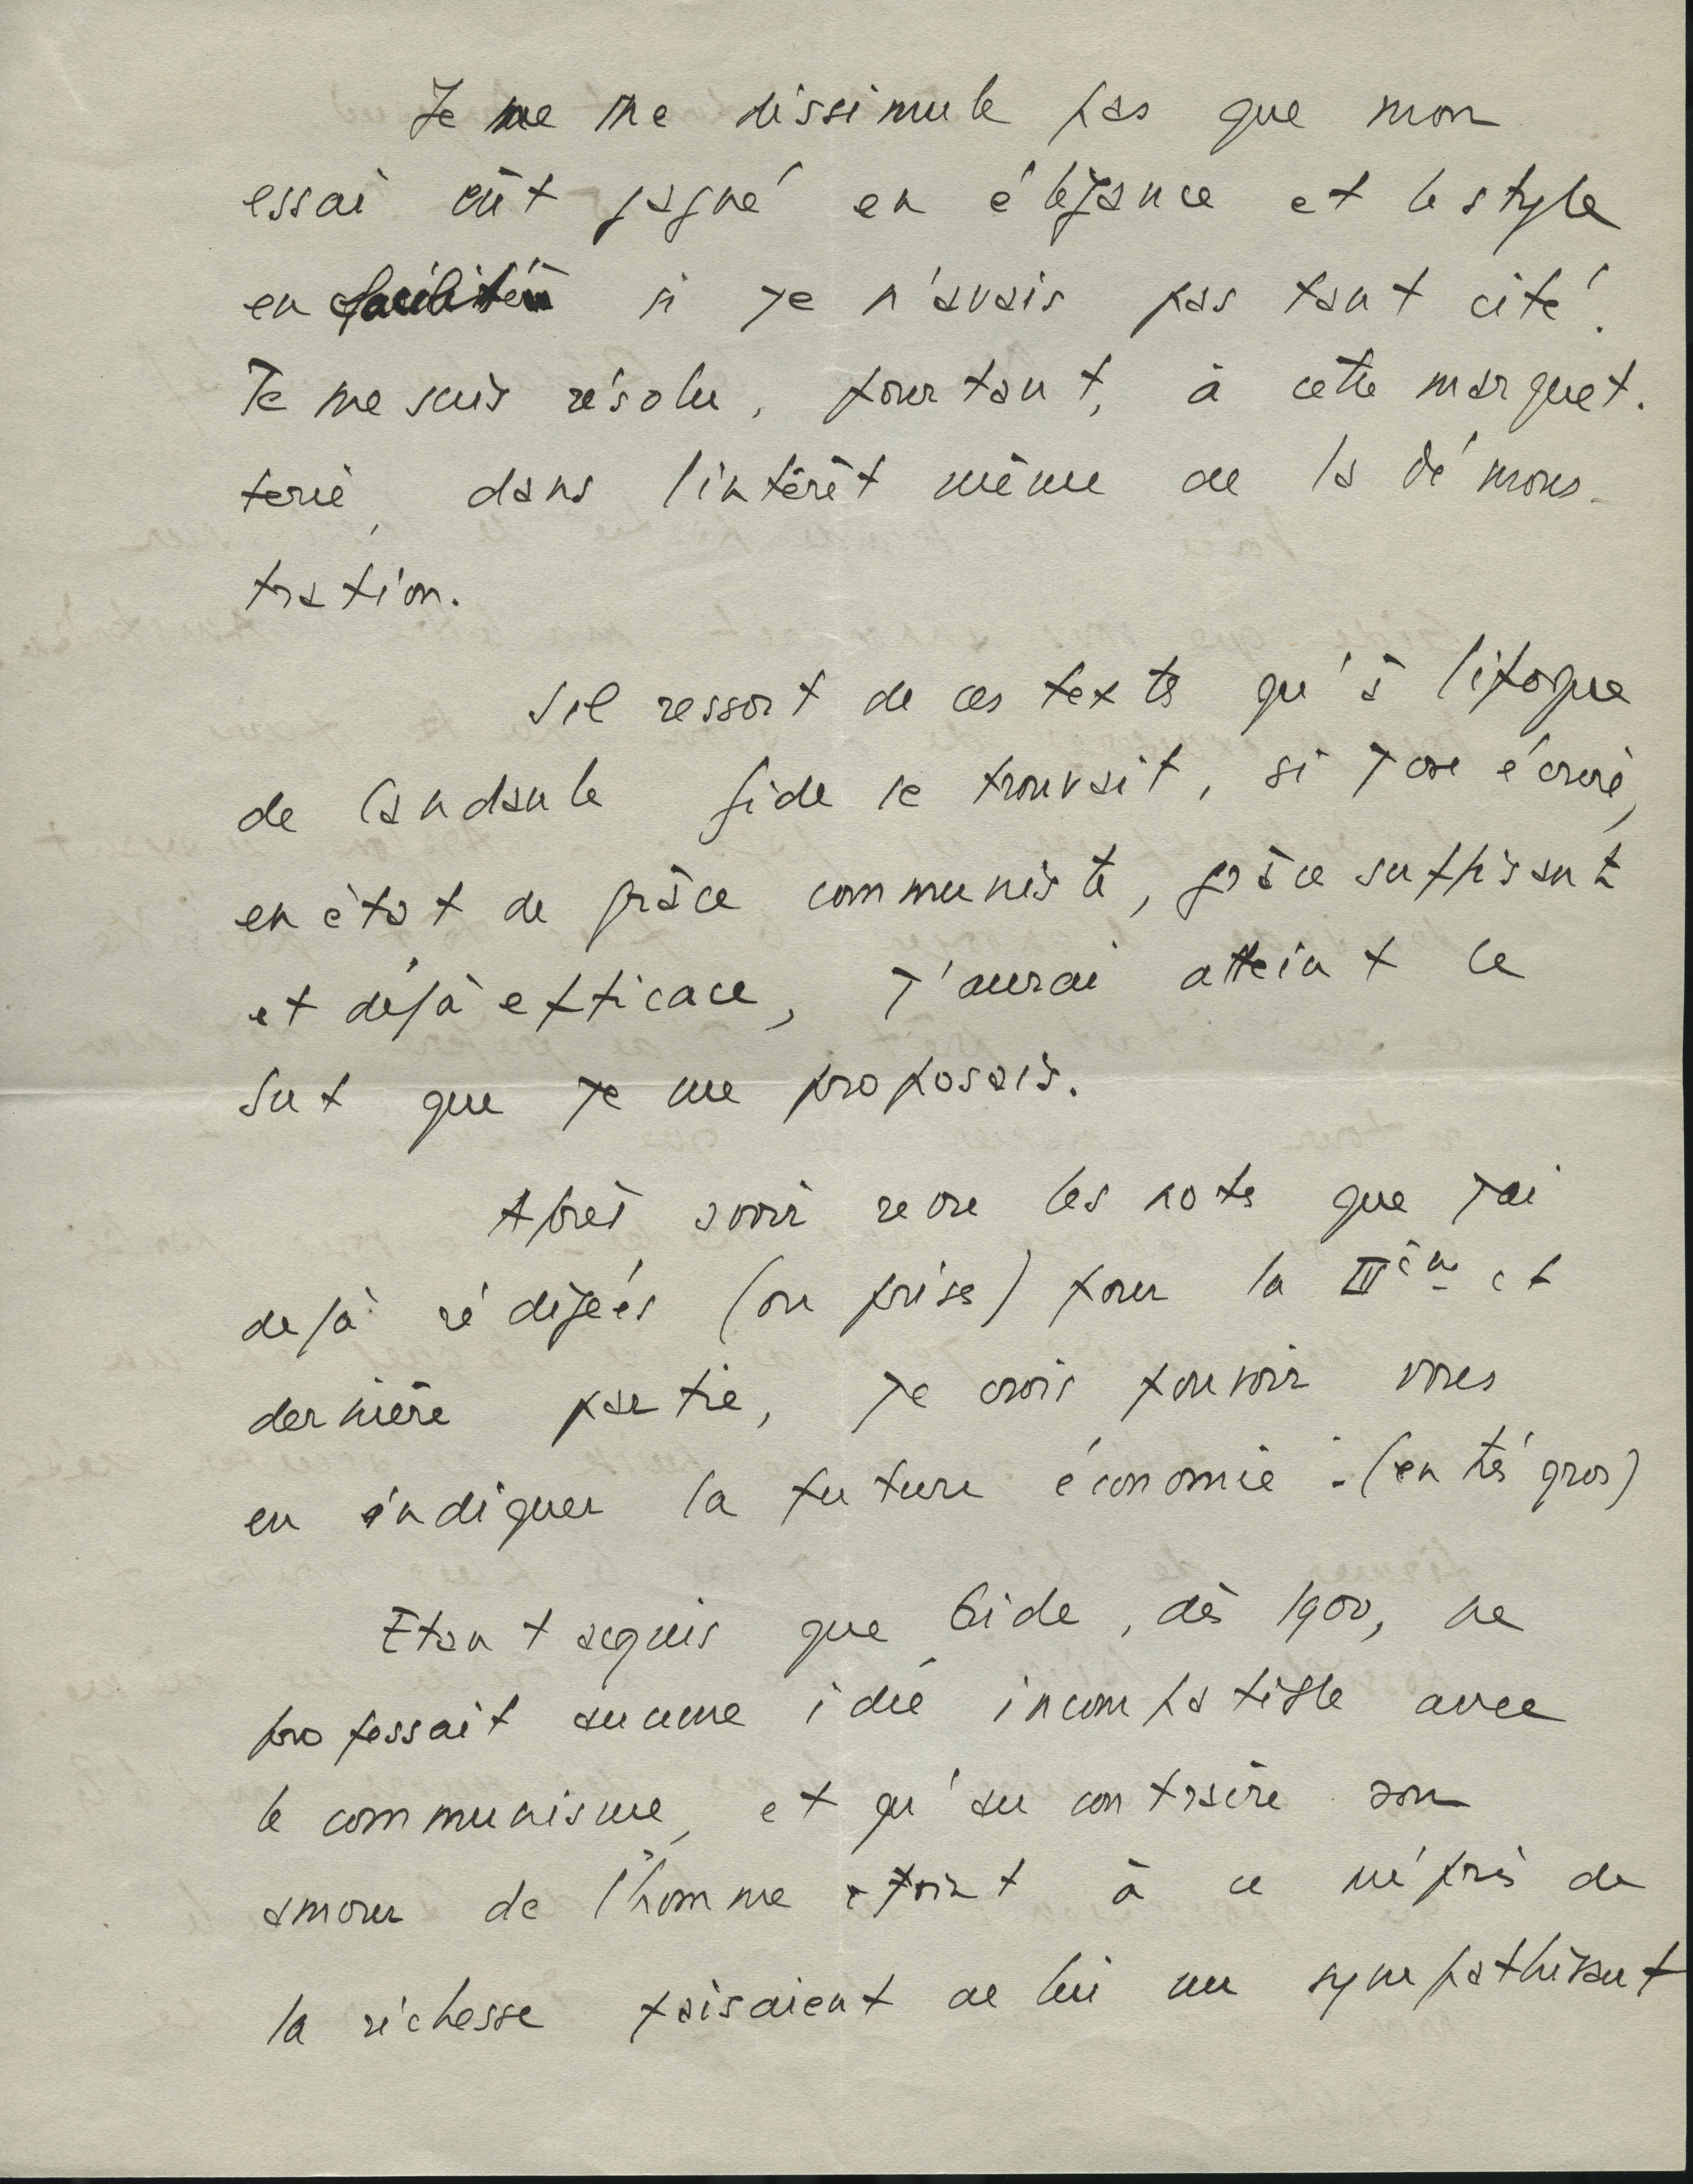 Je ne me dissimule pas que mon
essai eût gagné en élégance et le style
en facilité si je n'avais pas tant cité.
Je me suis résolu, pourtant, à cette marquet-
terie, dans l'intérêt même de la démons-
tration.
S'il ressort de ces textes qu'à l'époque
de Candaule Gide se trouvait, si j'ose écrire,
en état de grâce communiste, grâce suffisante
et déjà efficace, j'aurai atteint le
but que je me proposais.
Après avoir revu les notes que j'ai
déjà rédigées (ou prises) pour la IIème et
dernière partie, je crois pouvoir vous
en indiquer la future économie : (en très gros)
Etant acquis que Gide, dès 1900, ne
professait aucune idée incompatible avec
le communisme, et qu'au contraire son
amour de l'homme joint à ce mépris de
la richesse faisaient de lui un sympathisant